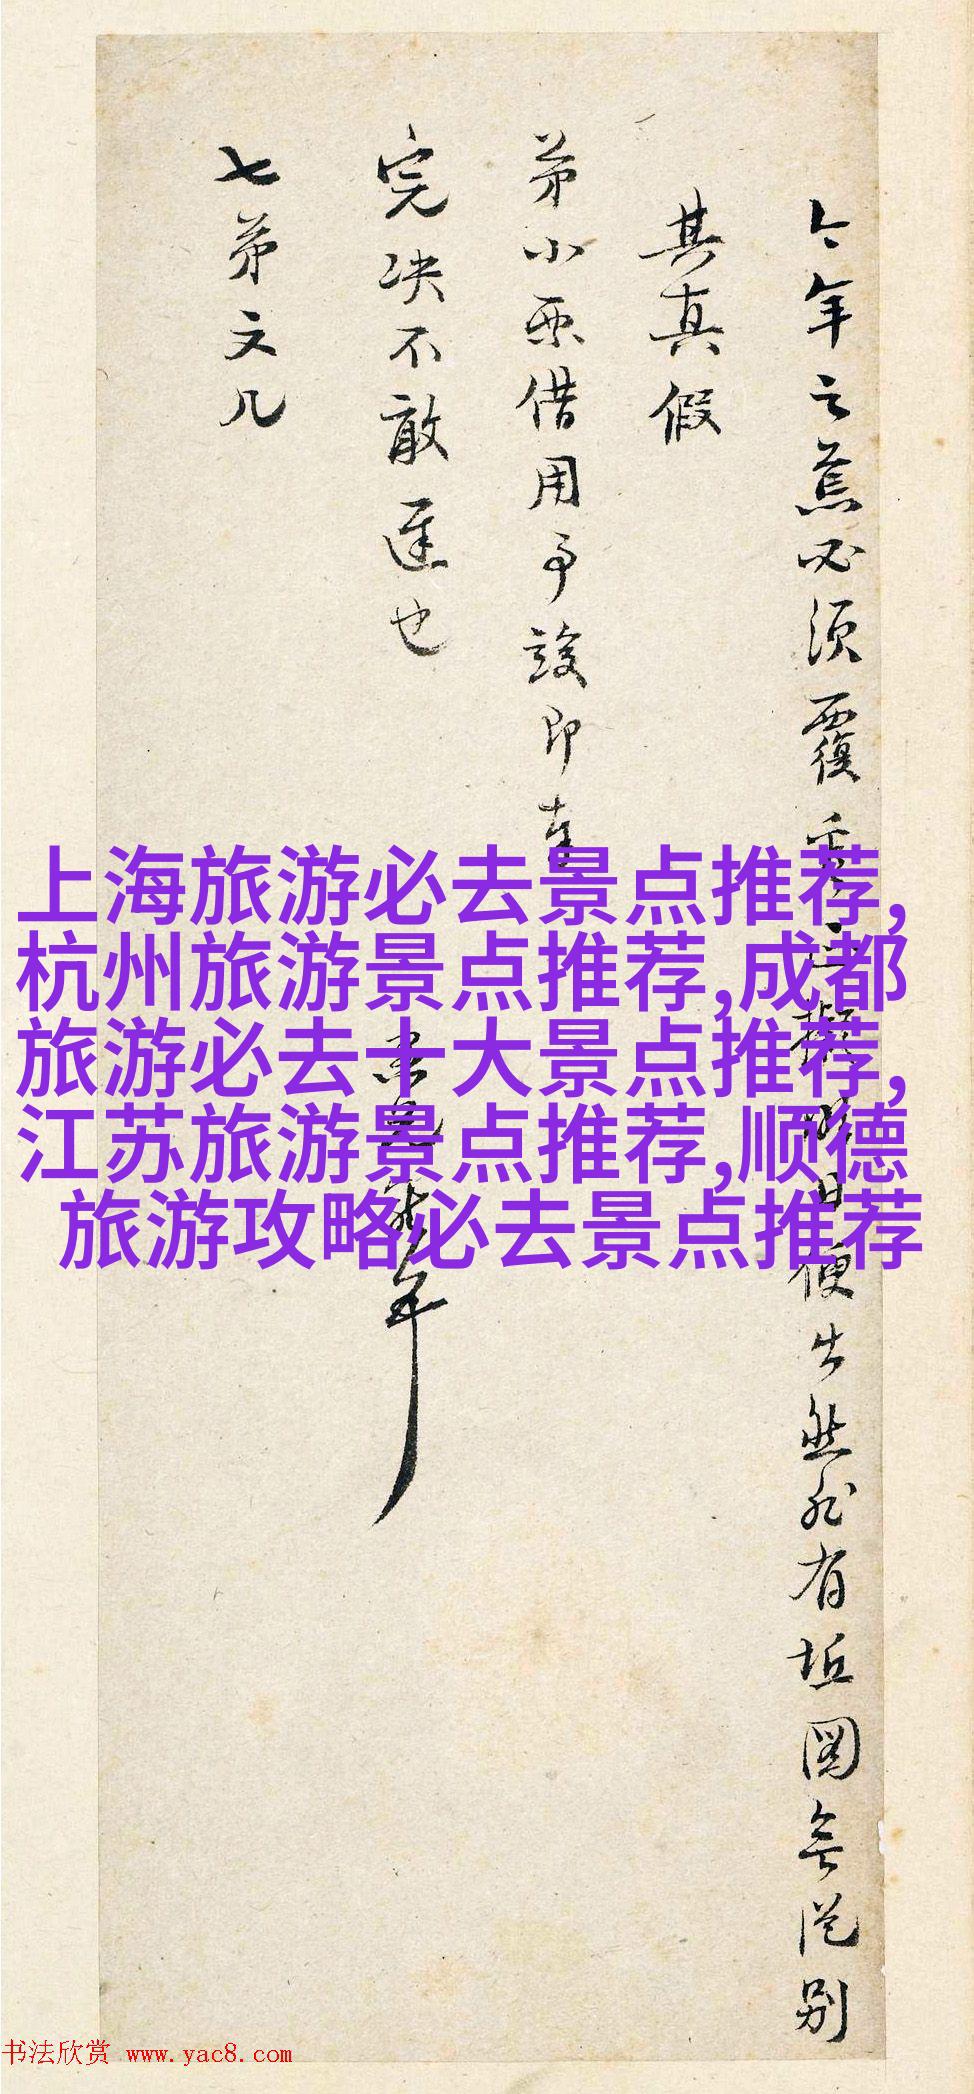 今年之蔦必须覆
擬明日便出然非有近图无从别
其真假
弟小票借用事竣即幸
完决不敢迟也
七弟文几
年
上海旅游必去景点推荐,
杭州旅游景点推荐,成都
旅游必去十大景点推荐,
江苏旅游景点推荐,顺德
旅游攻略必去景点推荐
书法欣赏 www.yac8.com